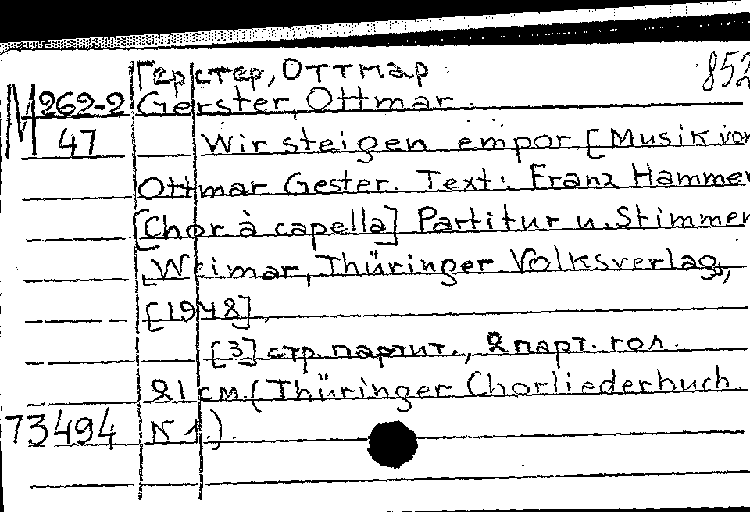 Герстер, Оттмар 852
M 262-2 Gerster, Ottmar.
47 Wir steigen empor [Musik von
Ottmar Gester. Text: Franz Hammer
[Chor à capella] Partitur u. Stimmen
Weimar, Thüringer Volksverlag,
[1948]
[3] стр. партит., 2 парт. гол.
21 см. (Thüringer Chorliederbuch
73494 N 1)